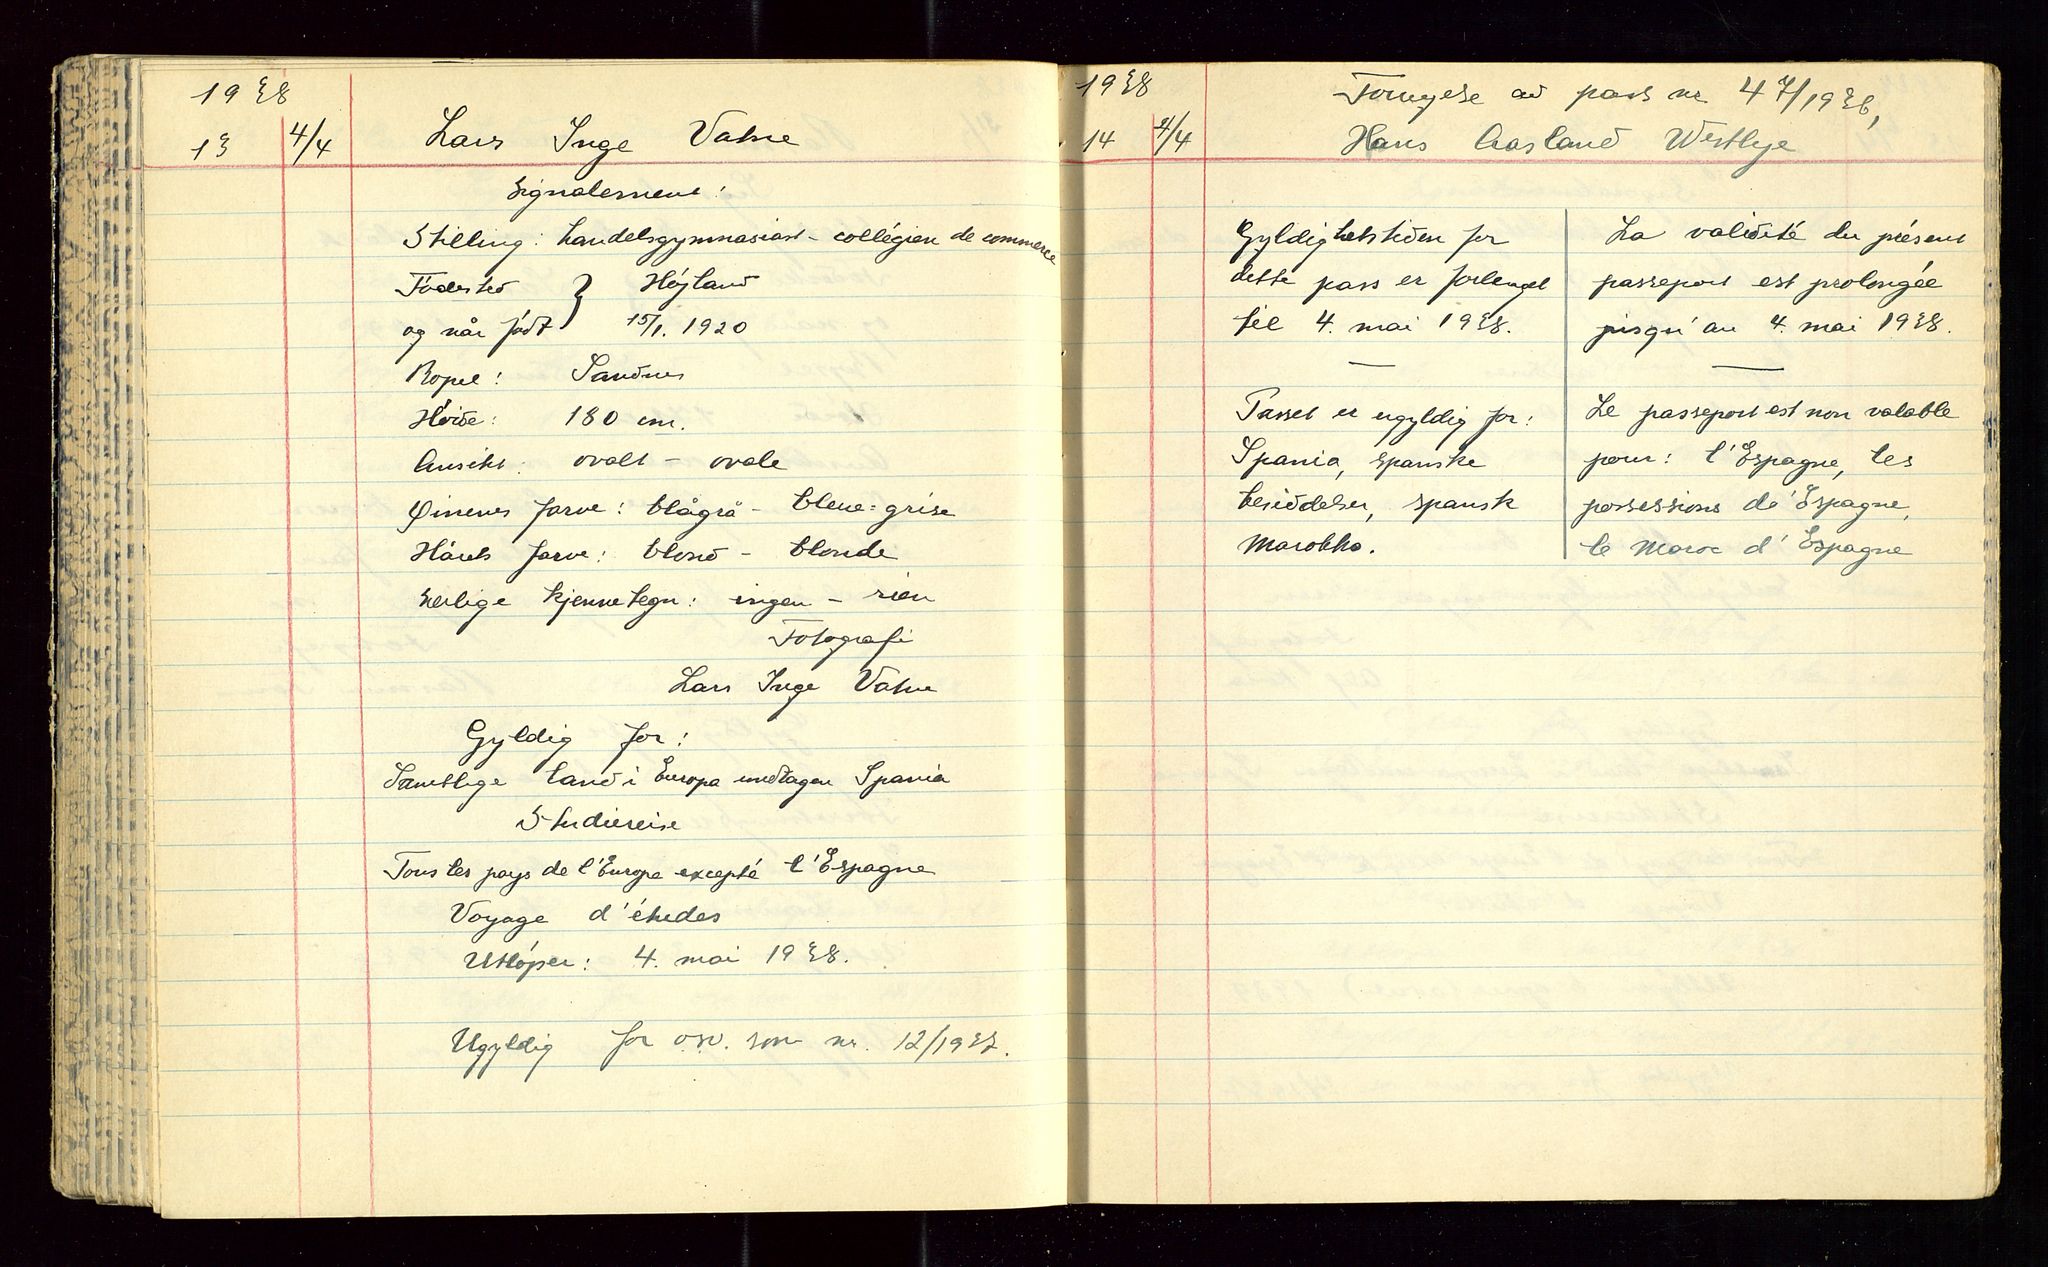 1938
13 4/4 Lars Inge Vatne
Signalement:
Stilling: handelsgymnasiast - collégien de commerce
Fødested } Höjland
og når født 15/1. 1920
Bopel: Sandnes
Høide: 180 cm.
Ansikt: ovalt - ovale
Øinenes farve: blågrå - bleue=grise
Hårets farve: blond - blonde
Serlige kjennetegn: ingen - rien
Fotografi
Lars Inge Vatne
Gyldig for:
Samtlige land i Europa undtagen Spania
Studiereise
Tous les pays de l'Europe excepté l'Espagne
Voyage d'études
Utløper: 4. mai 1938.
Ugyldig for osv. som nr. 12/1937.
1938 Fornyelse av pass nr 47/1936,
14 4/4 Hans Aasland Westbye
Gyldighetstiden for
dette pass er forlenget
til 4. mai 1938.
Passet er ugyldig for:
Spania, spanske
besiddelser, spansk
Marokko.
La validité du présent
passeport est prolongée
jusqu'au 4. mai 1938.
Le passeport est non valable
pour: l'Espagne, les
possessions de'Espagne,
le Maroc d'Espagne